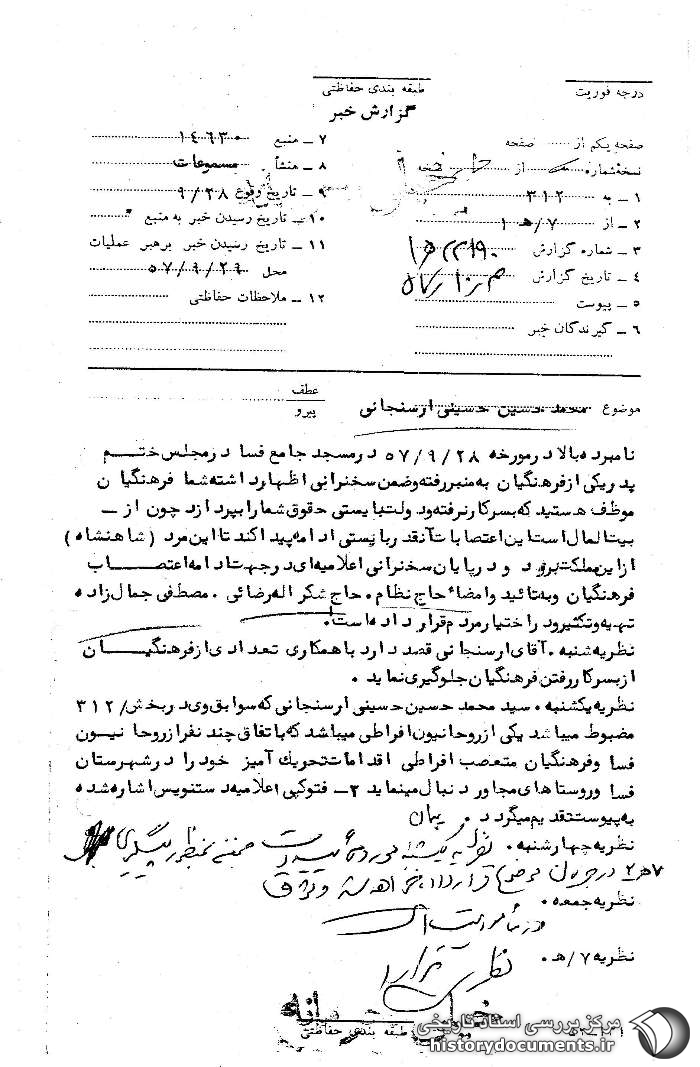 درجه فوریت
طبقه بندی حفاظتی
گزارش خبر
صفحه یکم از صفحه
نسخه شماره از نسخه
۱ ـ به ۳۱۲
۲ ـ از ۷/هـ ۱
۳ ـ شماره گزارش
۴ ـ تاریخ گزارش
۵ ـ پیوست
۶ ـ گیرندگان خبر
۷ ـ منبع ۱۴۶۳۰
۸ ـ منشأ مسموعات
۹ ـ تاریخ وقوع ۹/۲۸
۱۰ ـ تاریخ رسیدن خبر به منبع
۱۱ ـ تاریخ رسیدن خبر برهبر عملیات
محل ۵۷/۹/۲۹
۱۲ ـ ملاحظات حفاظتی
موضوع محمد حسین حسینی ارسنجانی
عطف
پیرو
نامبرده بالا در مورخه ۵۷/۹/۲۸ در مسجد جامع فسا در مجلس ختم
پدر یکی از فرهنگیان به منبر رفته و ضمن سخنرانی اظهار داشته شما فرهنگیان
موظف هستید که بسر کار نرفته و دولت بایستی حقوق شما را بپردازد چون از ـ
بیت المال است این اعتصابات آنقدر بایستی ادامه پیدا کند تا این مرد (شاهنشاه)
از این مملکت برود و در پایان سخنرانی اعلامیه ای در جهت ادامه اعتصاب
فرهنگیان و به تائید و امضاء حاج نظام . حاج شکر اله رضائی . مصطفی جمال زاده
تهیه و تکثیر و در اختیار مردم قرار داده است .
نظریه شنبه . آقای ارسنجانی قصد دارد با همکاری تعدادی از فرهنگیان
از بسر کار رفتن فرهنگیان جلوگیری نماید .
نظریه یکشنبه . سید محمد حسین حسینی ارسنجانی که سوابق وی در بخش/۳۱۲
مضبوط میباشد یکی از روحانیون افراطی میباشد که با تفاق چند نفر از روحانیون
فسا و فرهنگیان متعصب افراطی اقدامات تحریک آمیز خود را در شهرستان
فسا و روستاهای مجاور دنبال مینماید ۲ـ فتوکپی اعلامیه دستنویس اشاره شده
به پیوست تقدیم میگردد . پیمان
نظریه چهارشنبه . نظریه یکشنبه مورد تأیید است ضمناً بمنظور پیگیری
۷هـ۲ در جریان موضوع قرار داده خواهد شد
نظریه جمعه .
نظریه ۷/هـ .
طبقه بندی حفاظتی
مرکز بررسی اسناد تاریخی
historydocuments.ir